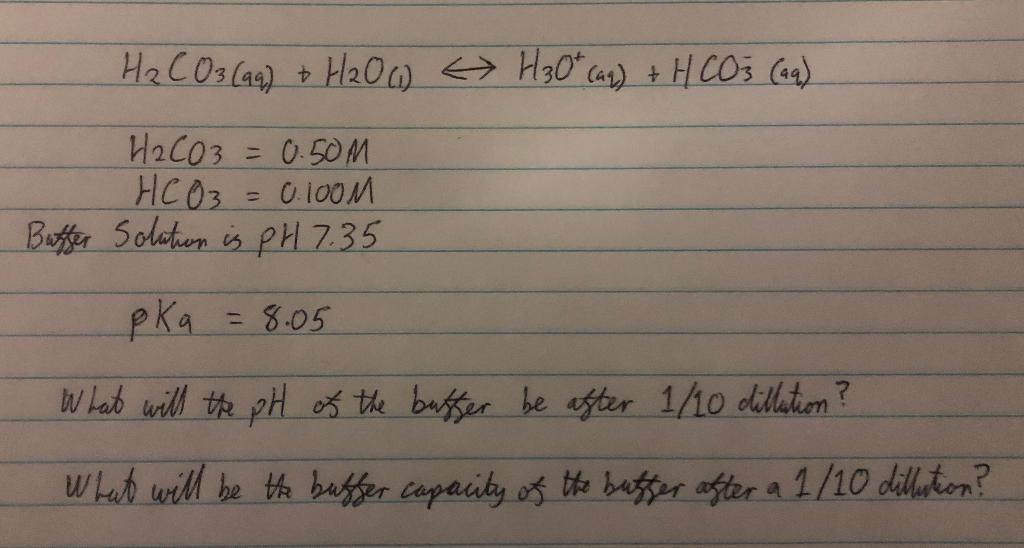 H₂CO₃(aq) + H₂O(l) ↔ H₃O⁺(aq) + HCO₃⁻(aq)
H₂CO₃ = 0.50M
HCO₃ = 0.100M
Buffer Solution is pH 7.35
pKa = 8.05
What will the pH of the buffer be after 1/10 dillation?
What will be the buffer capacity of the buffer after a 1/10 dillution?